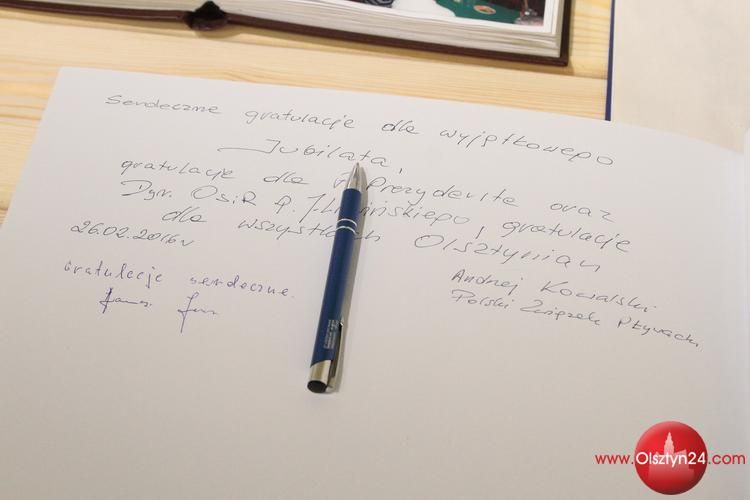 Serdeczne gratulacje dla wyjątkowego
Jubilata,
gratulacje dla P. Prezydenta oraz
Dyr. OSiR P. J. Litwińskiego, gratulacje
dla wszystkich Olsztynian
26.02.2016r
Andrzej Kowalski
Polski Związek Pływacki
Gratulacje serdeczne.
www.Olsztyn24.com